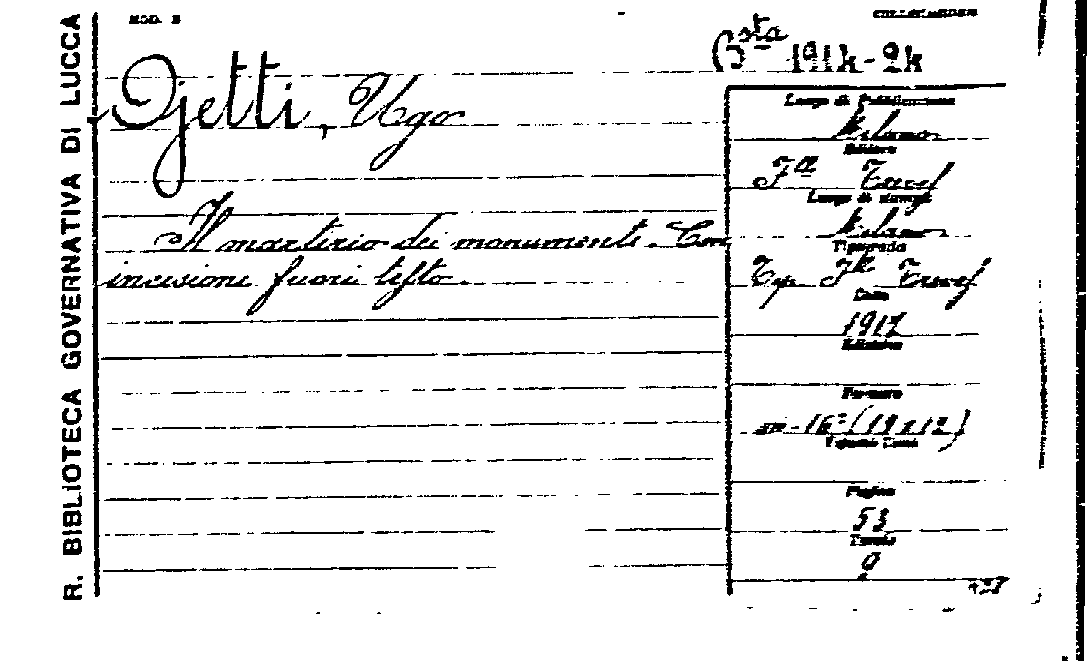 R. BIBLIOTECA GOVERNATIVA DI LUCCA
MOD. 2
COLLOCAZIONE
Bsta 191k-2k
Ojetti, Ugo
Il martirio dei monumenti. Con
incisioni fuori testo.
Luogo di Pubblicazione
Milano
Editore
Fll Treves
Luogo di stampa
Milano
Tipografia
Tip. Flli Treves
Data
1917
Edizione
Formato
in-16° (19x12)
Volume Tomo
Pagine
53
Tavole
9